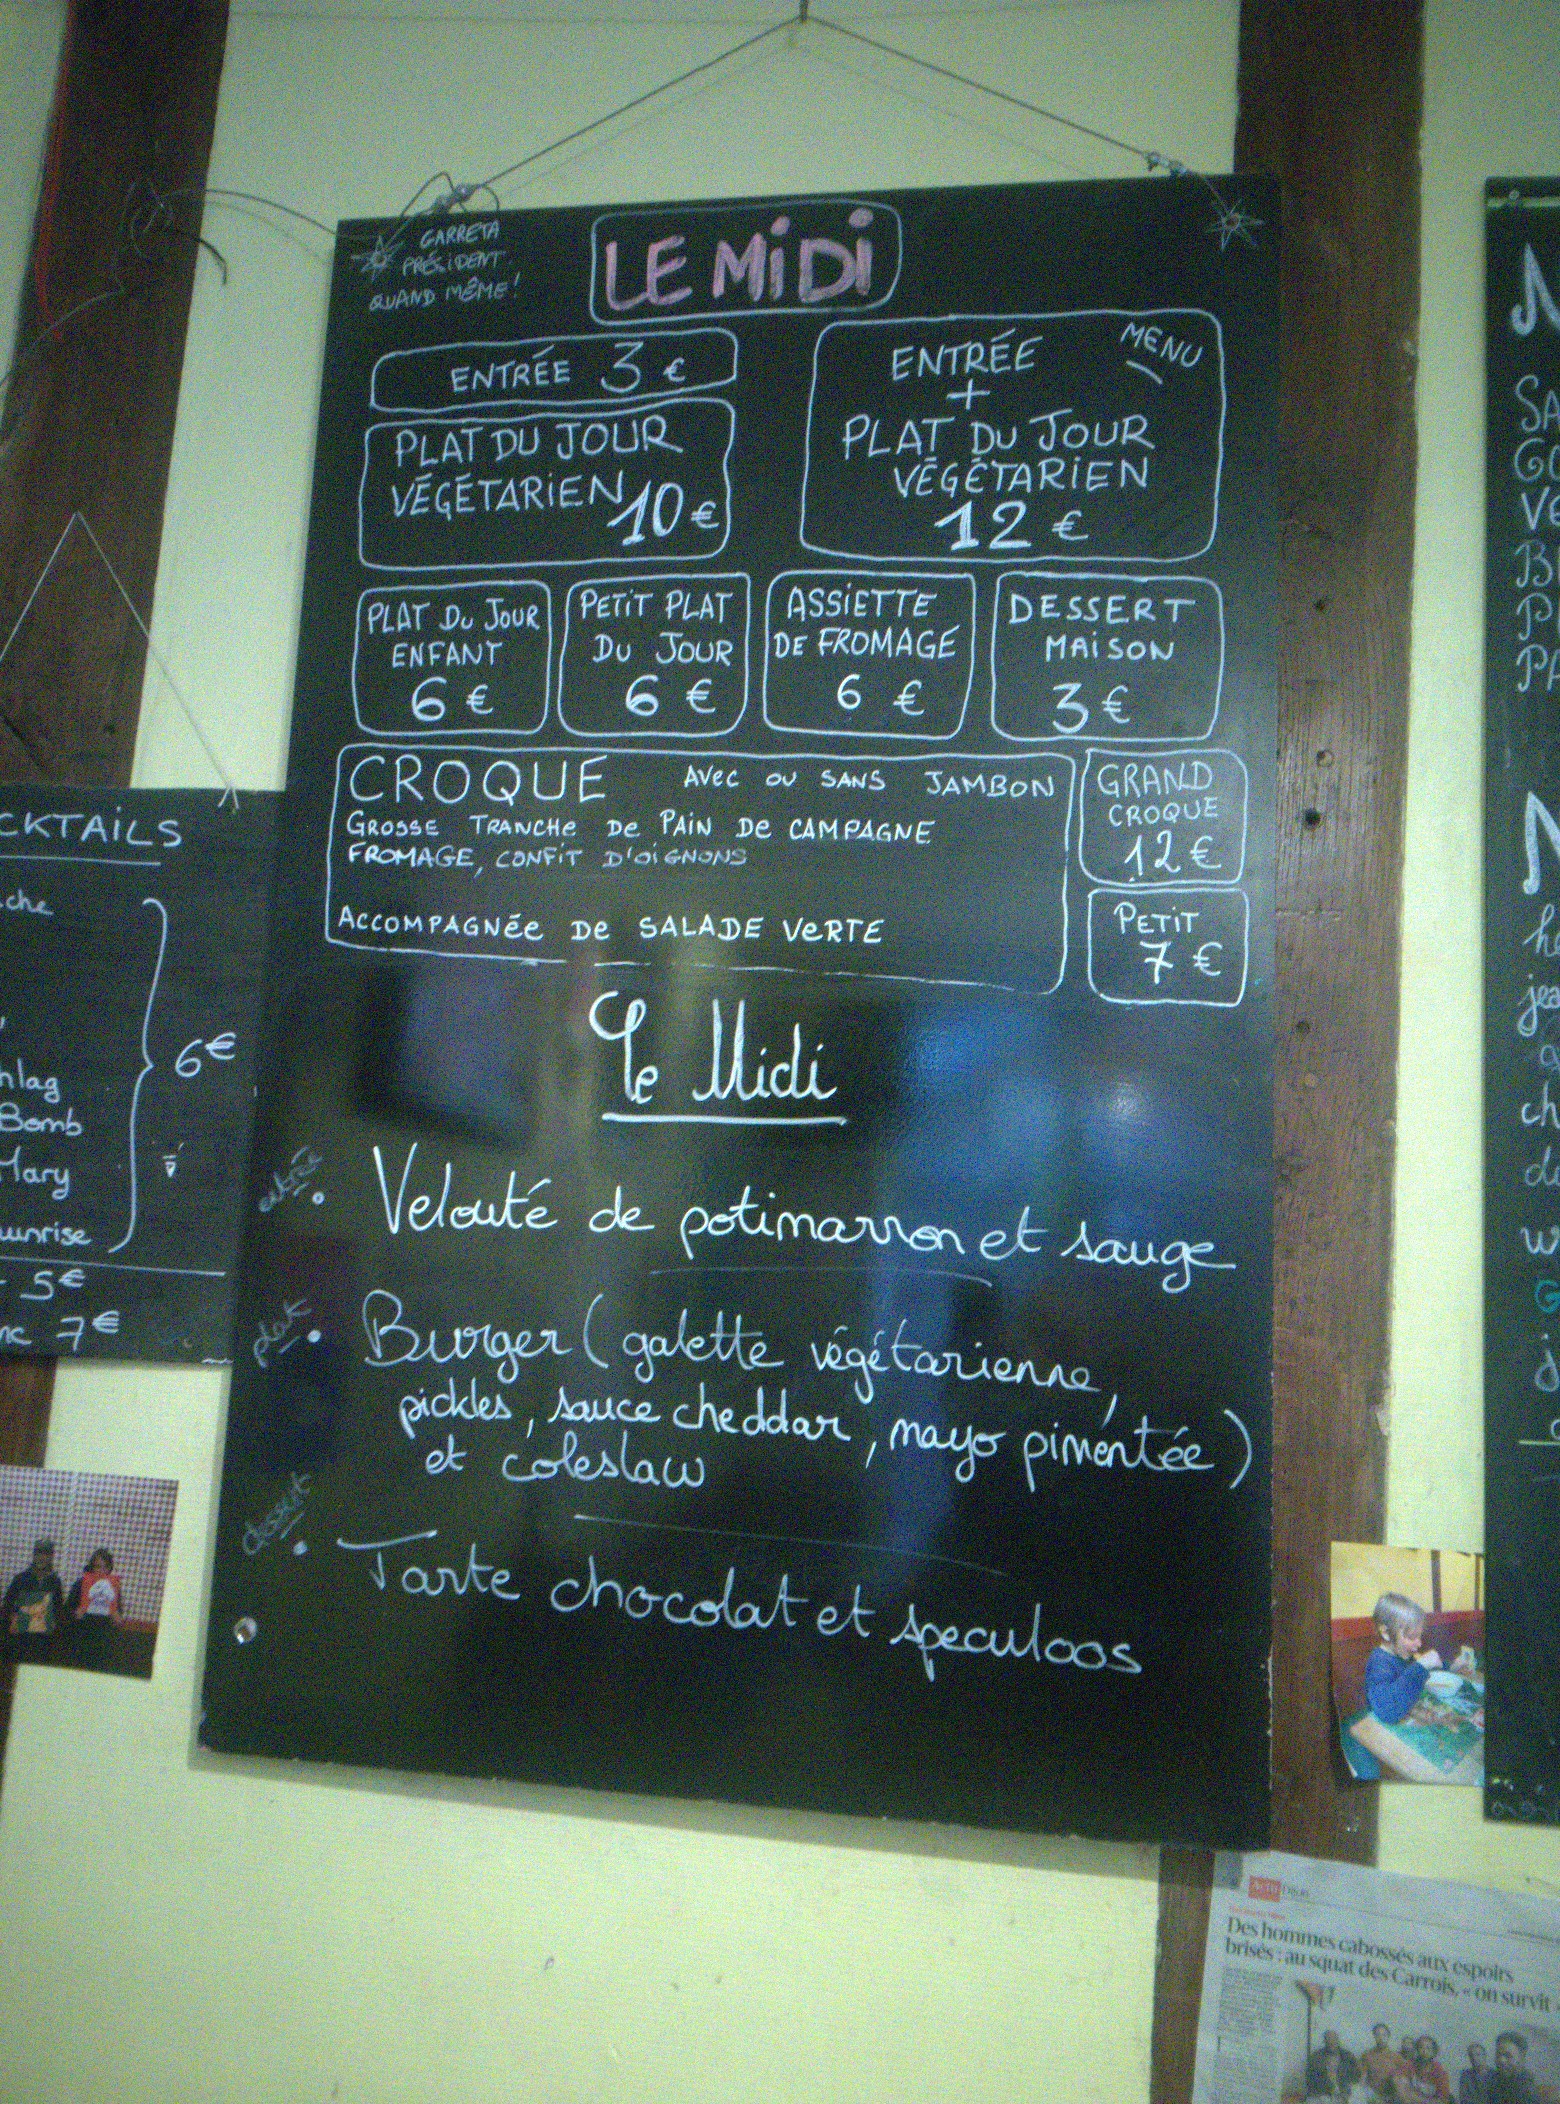 GARRETA
PRÉSIDENT
QUAND MÊME!
LE MiDi
ENTRÉE 3 €
PLAT DU JOUR
VÉGÉTARiEN 10 €
MENU
ENTRÉE
+
PLAT DU JOUR
VÉGÉTARiEN
12 €
PLAT DU JOUR
ENFANT
6 €
PETiT PLAT
DU JOUR
6 €
ASSiETTE
DE FROMAGE
6 €
DESSERT
MAiSON
3 €
CROQUE AVEC OU SANS JAMBON
GROSSE TRANCHE DE PAiN DE CAMPAGNE
FROMAGE, CONFiT D'OiGNONS
ACCOMPAGNÉE DE SALADE VERTE
GRAND
CROQUE
12 €
PETiT
7 €
Le Midi
entrée
Velouté de potimarron et sauge
plat
Burger (galette végétarienne,
pickles, sauce cheddar, mayo pimentée)
et coleslaw
dessert
Tarte chocolat et speculoos
CKTAiLS
che
hlag
Bomb
Mary
unrise
6€
5€
7€
SA
GO
VE
PA
jea
ch
Actu Dijon
Des hommes cabossés aux espoirs
brisés : au squat des Carrois, « on survit »